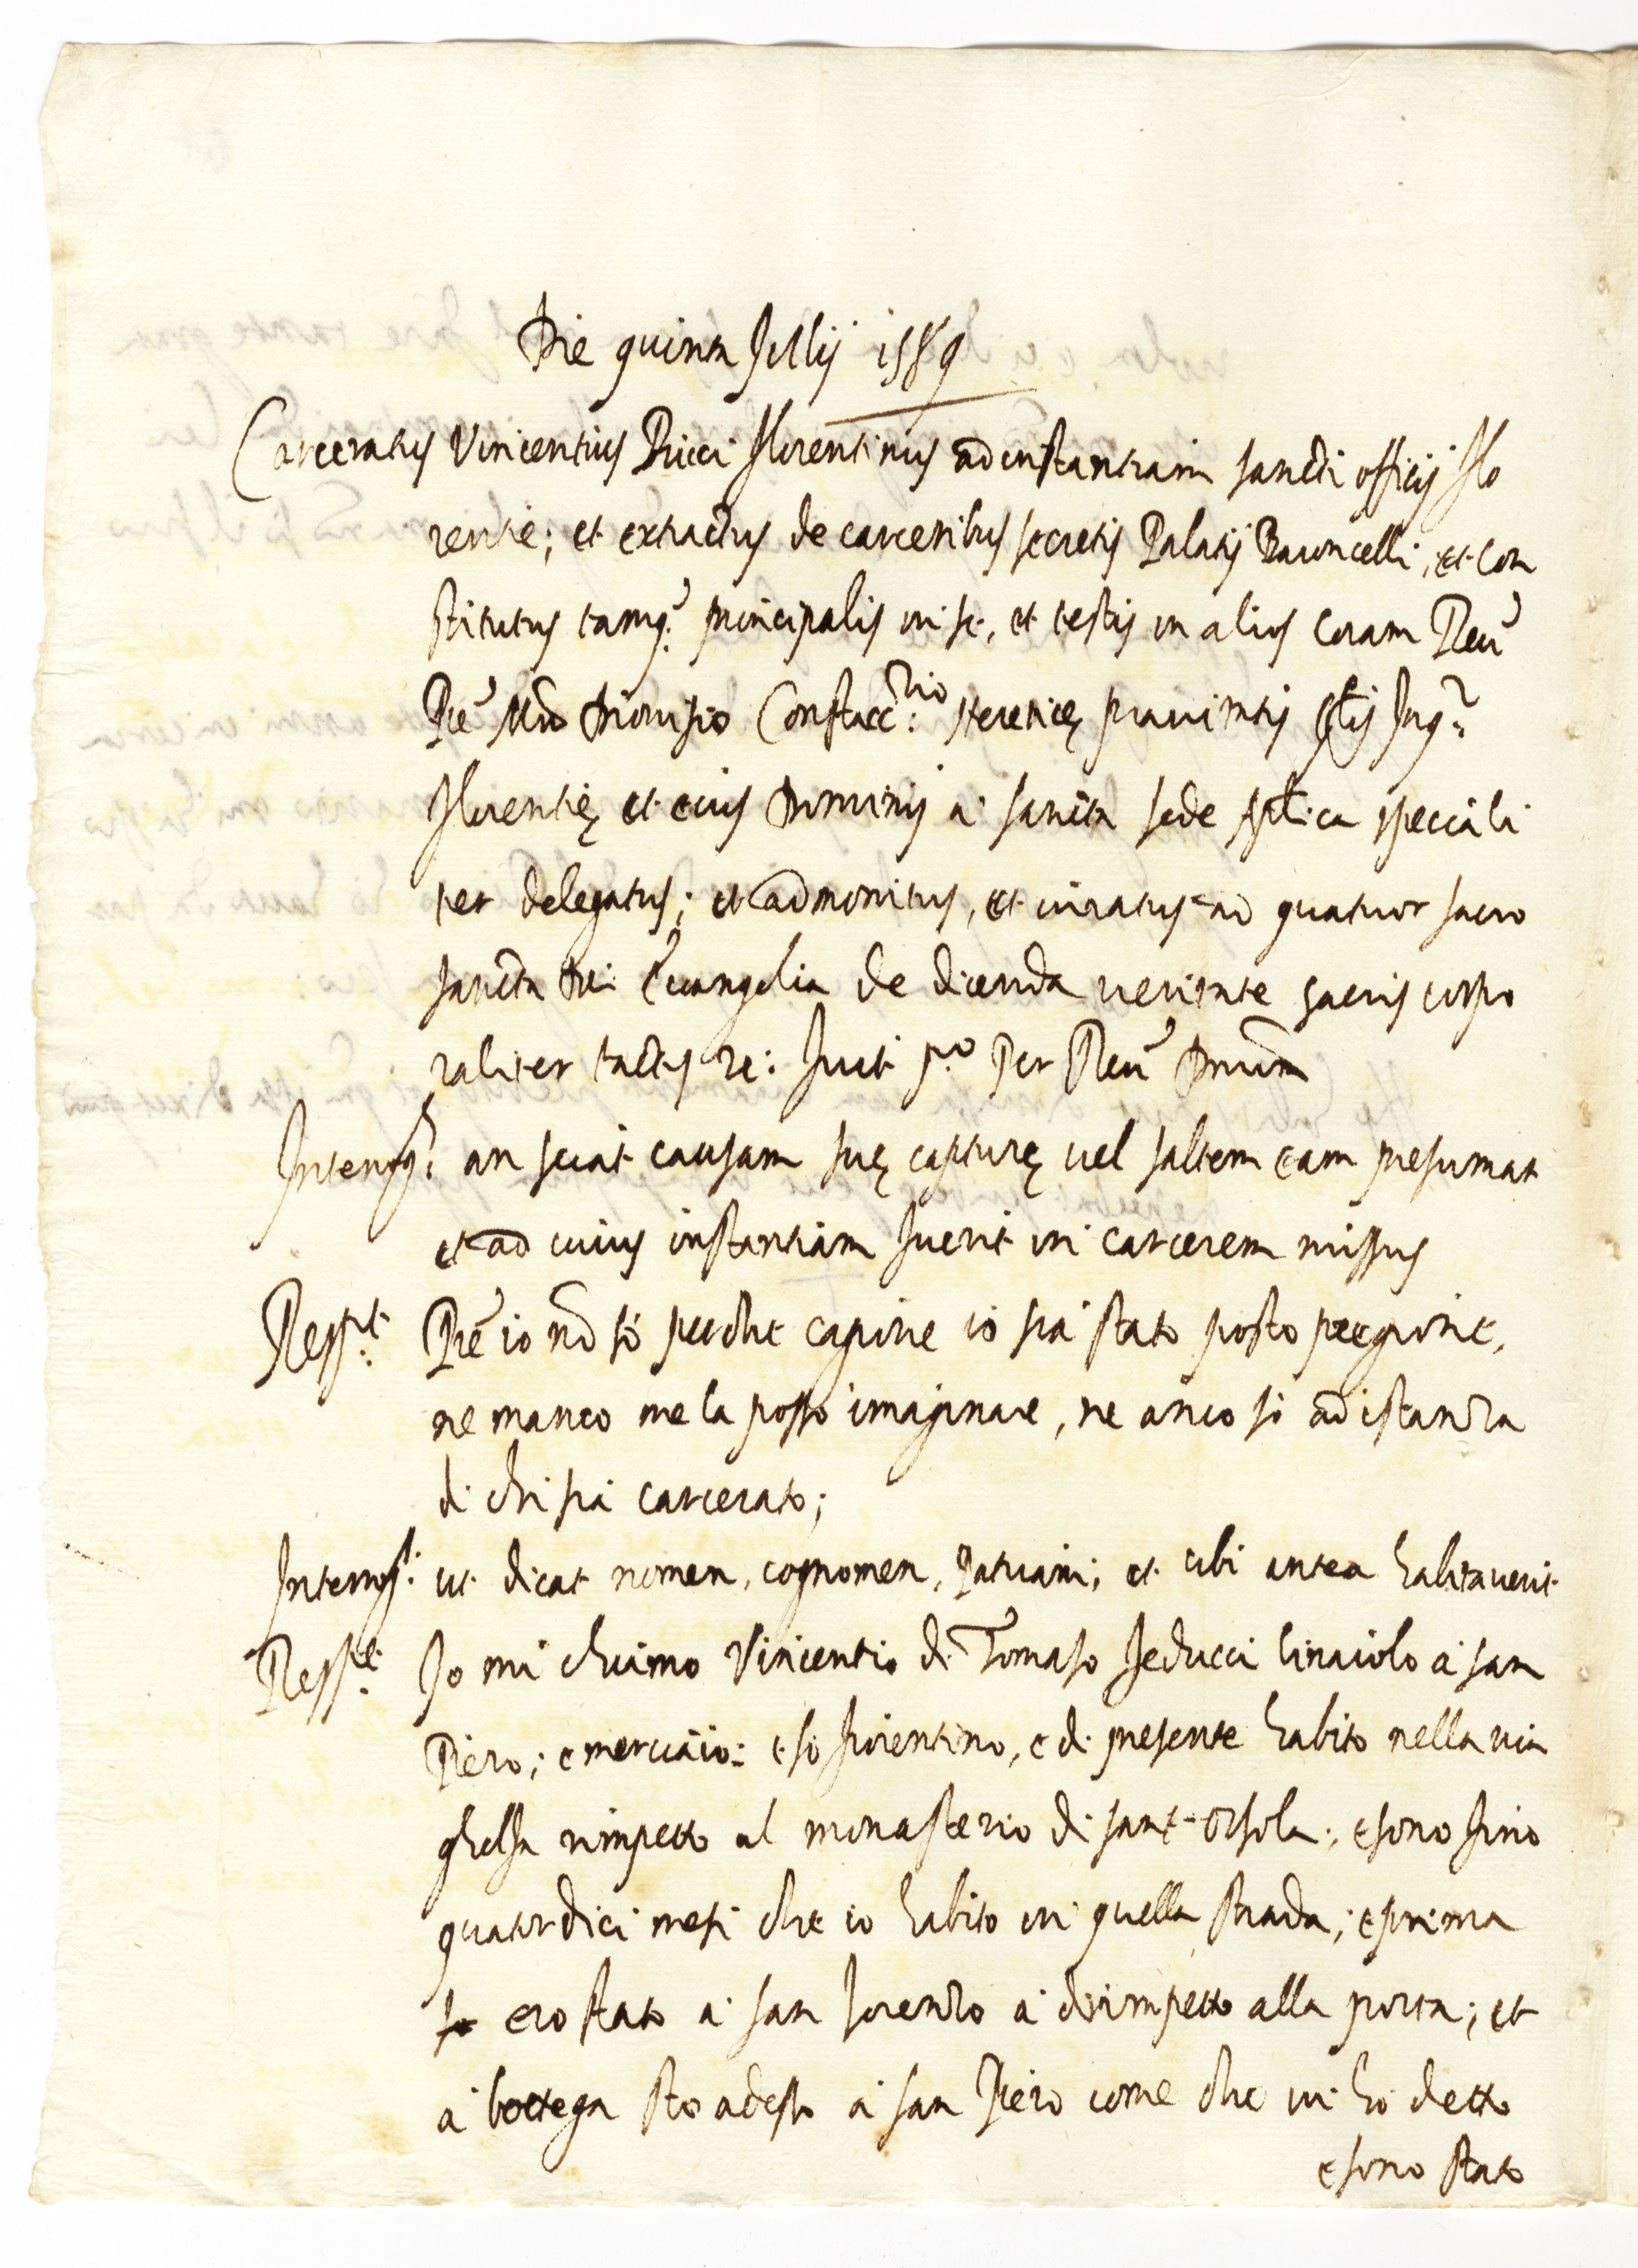 Die quinta Jullij 1589
Carceratus Vincentius Ricci florentinus ad instantiam sancti officij flo
rentie; et extractus de carceribus secretis Palatij Baroncelli, et con
stitutus tamq. principalis in se, et testis in alios coram Reu
Pre Mro Dionisio Constacc:rio hereticę prauitatis Inq.
florentię et eius Dominij a sancta sede Aplica speciali
ter delegatus; et admonitus, et iuratus ad quatuor sacro
sancta Dei Euangelia de dicenda ueritate sacris corpo
raliter tactis re: fuit p.o Per Reu Dnum
Interrog: an sciat causam suę capturę uel saltem eam presumat
et ad cuius instantiam fuerit in carcerem missus
Resp.t Pre io nō sò perche cagione io sia stato posto preggione,
ne manco me la posso imaginare, ne anco sò ad istanza
di chi sia carcerato;
Interrog: ut dicat nomen, cognomen, patriam; et ubi antea habitauerit
Resp.t Jo mi chiamo Vincentio di Tomaso feducci linaiolo a san
Piero; e merciaio: e so fiorentino, e di presente habito nella uia
ghelfa rimpetto al monasterio di sant-Orsola; e sono sino
quatordici mesi che io habito in quella strada; e prima
ero stato a san lorenzo a dirimpetto alla porta; et
a bottega sto adesso a san Piero come che ui hò detto
e sono stato